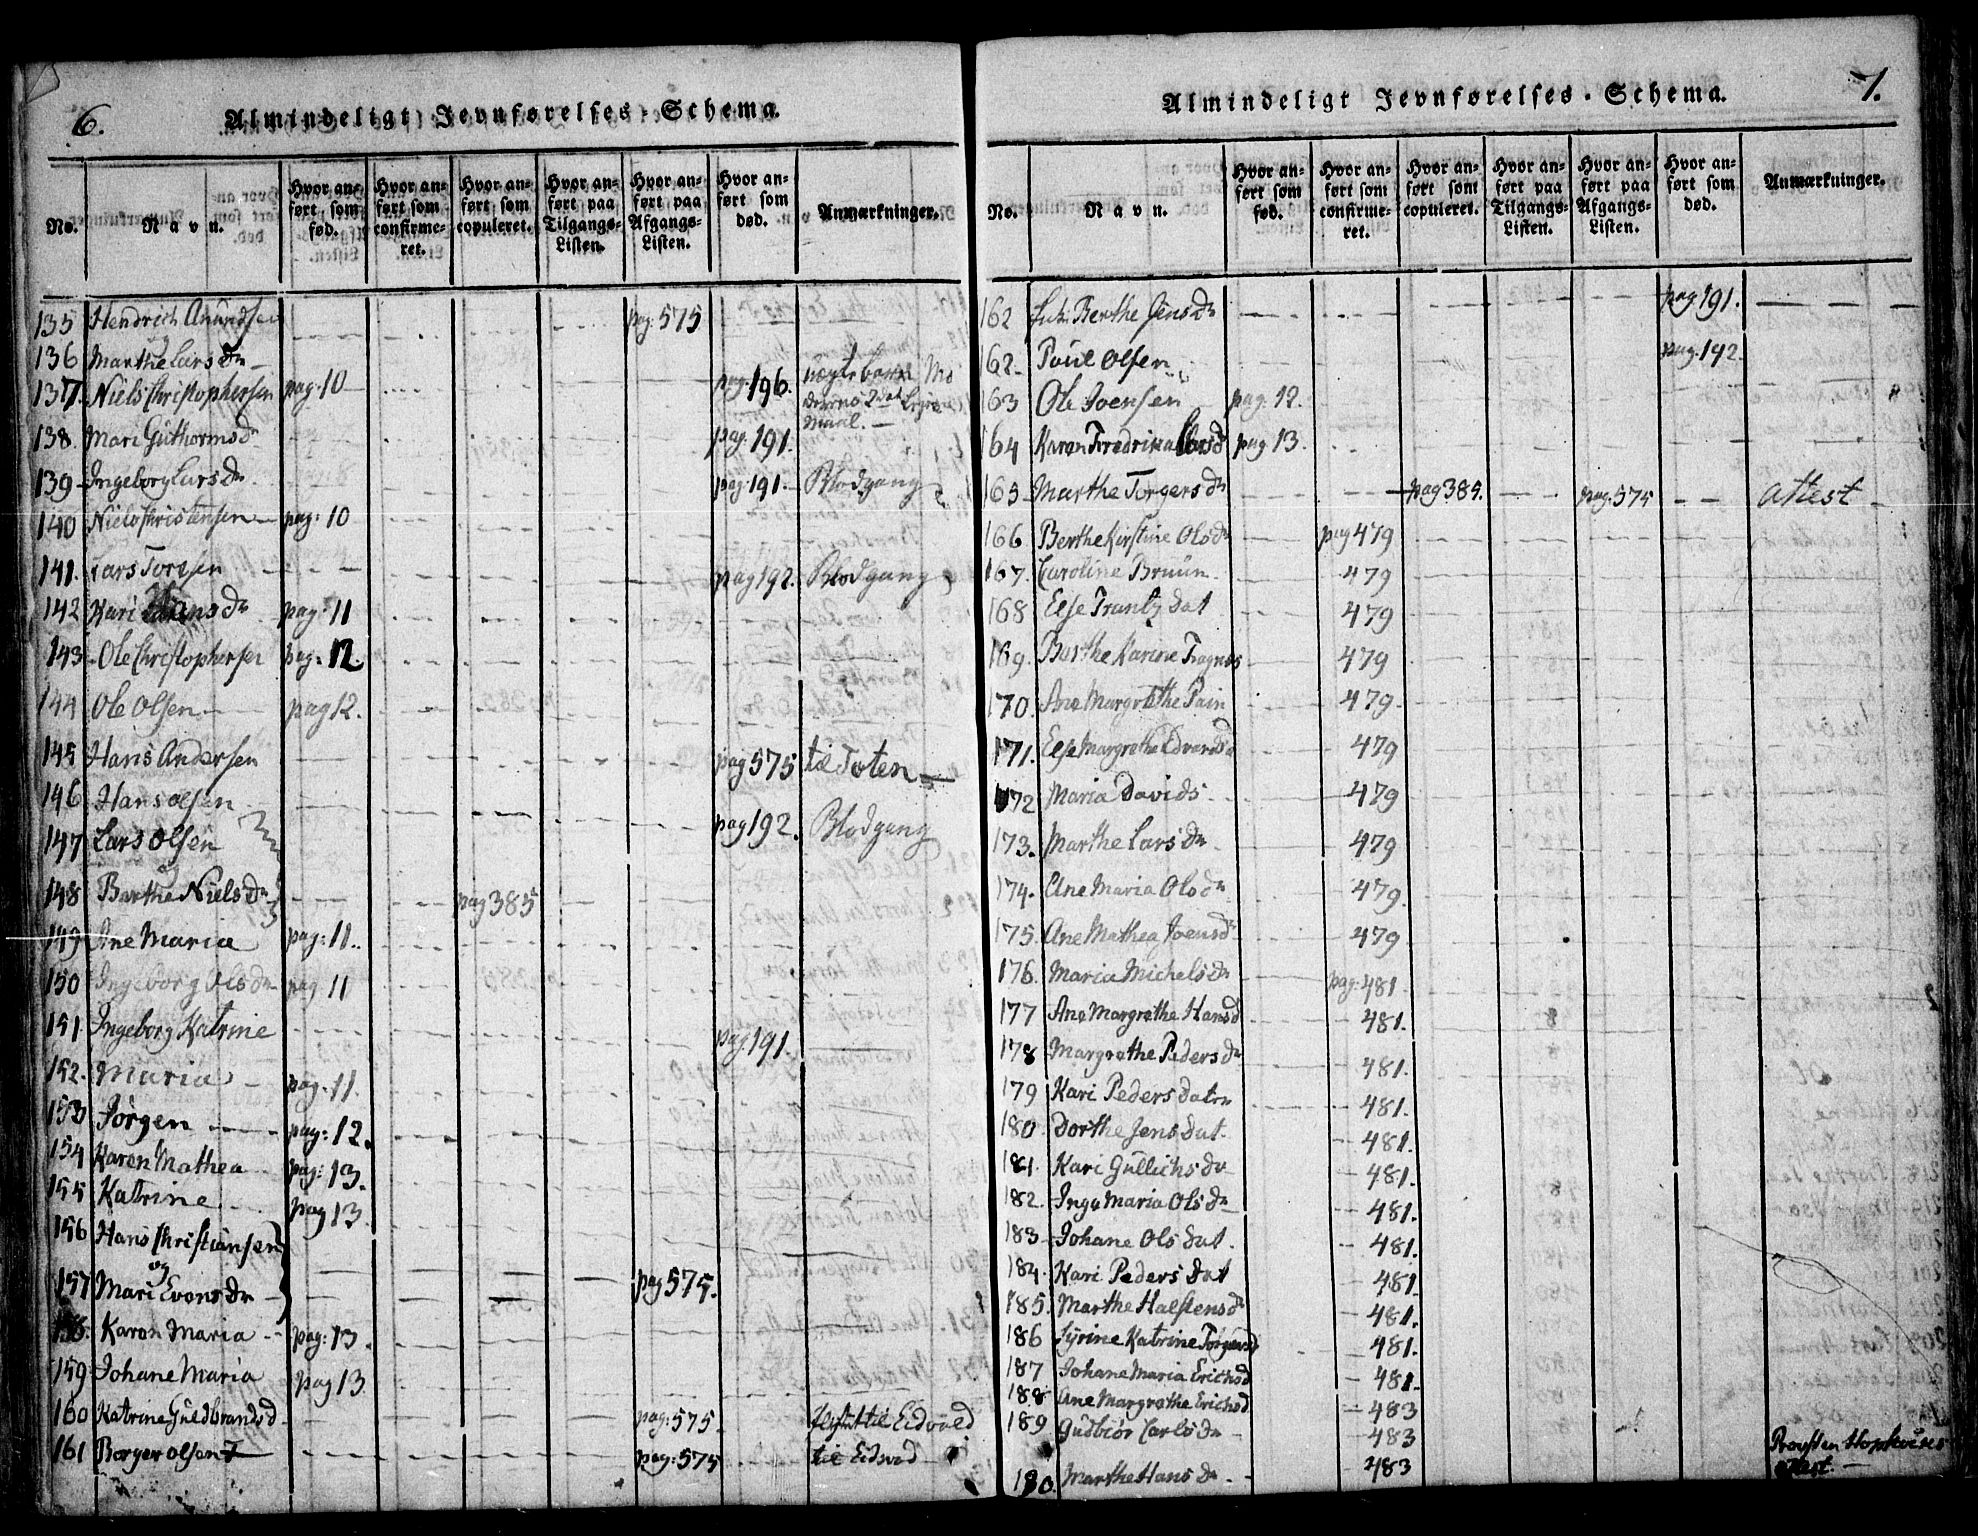 6.
Almindeligt Jevnførelses-Schema.
No.
Navn.
Hvor anført som fød.
Hvor anført som confirmeret.
Hvor anført som copuleret.
Hvor anført paa Tilgangs-Listen.
Hvor anført paa Afgangs-Listen.
Hvor anført som død.
Anmærkninger.
135 Hendrich Anundsen pag: 575
og
136 Marthe Lars dr
137. Niels Christophersen pag: 10 pag. 196. uægte barn Mo
derens 2det Leier
maal.
138. Mari Guthormsdr pag. 191.
139 Ingeborg Lars dr pag. 191. Blodgang
140 Niels Christensen pag: 10
141. Lars Torsen pag 192. Blodgang
142 Kari Hansdr pag: 11
143 Ole Christophersen pag: 12
144 Ole Olsen pag 12.
145 Hans Andersen pag 575 til Toten
146 Hans Olsen pag 192. Blodgang
147 Lars Olsen
og
148 Barthe Niels dr pag 385
149 Ane Maria pag: 11.
150 Ingeborg Ols dr pag 11
151 Ingeborg Katrine pag. 191.
152. Maria pag. 11.
153 Jörgen pag: 12.
154 Karen Mathea pag: 13.
155 Katrine pag 13.
156 Hans Christiansen
og
157 Mari Evens dr pag 575.
158. Karen Maria pag: 13.
159 Johane Maria pag 13
160 Katrine Guldbrandsd pag: 575. til Eidvold
161 Borger Olsen pag: 575 til Eidsvod
7.
Almindeligt Jevnførelses-Schema.
No.
Navn.
Hvor anført som fød.
Hvor anført som confirmeret.
Hvor anført som copuleret.
Hvor anført paa Tilgangs-Listen.
Hvor anført paa Afgangs-Listen.
Hvor anført som død.
Anmærkninger.
162 Berthe Jens dr pag 191.
162. Poul Olsen pag. 192.
163 Ole Joensen pag. 12.
164 Karen Fredrikka Larsd pag: 13.
165 Marthe Torgers dr pag 385. pag: 575 attest
166 Berthe Kirstine Ols dr pag 479
167. Caroline Bruun 479
168 Else Frantz dat 479
169. Barthe Karine Tragnes 479
170. Ane Margrethe Pain 479
171. Else Margrethe Edvardsd 479
172 Maria Davids 479
173. Marthe Lars dr 479
174. Ane Maria Ols dr 479
175. Ane Mathea Joensdr 479
176. Maria Michels dr pag. 481
177 Ane Margrethe Hansd 481.
178 Margrethe Peders dr 481.
179 Kari Peders datr 481.
180 Dorthe Jens dat. 481.
181. Kari Gullichs dr 481.
182. Inge Maria Ols dr 481.
183. Johane Ols dat. 481.
184. Kari Peders dat 481
185. Marthe Halstens dr 481.
186 Syrine Katrine Torgersd 481.
187 Johane Maria Erichsd 481.
188 Ane Margrethe Erichsd 483
189 Gudbiör Carls dr 483
190. Marthe Hans dr 483 attest.